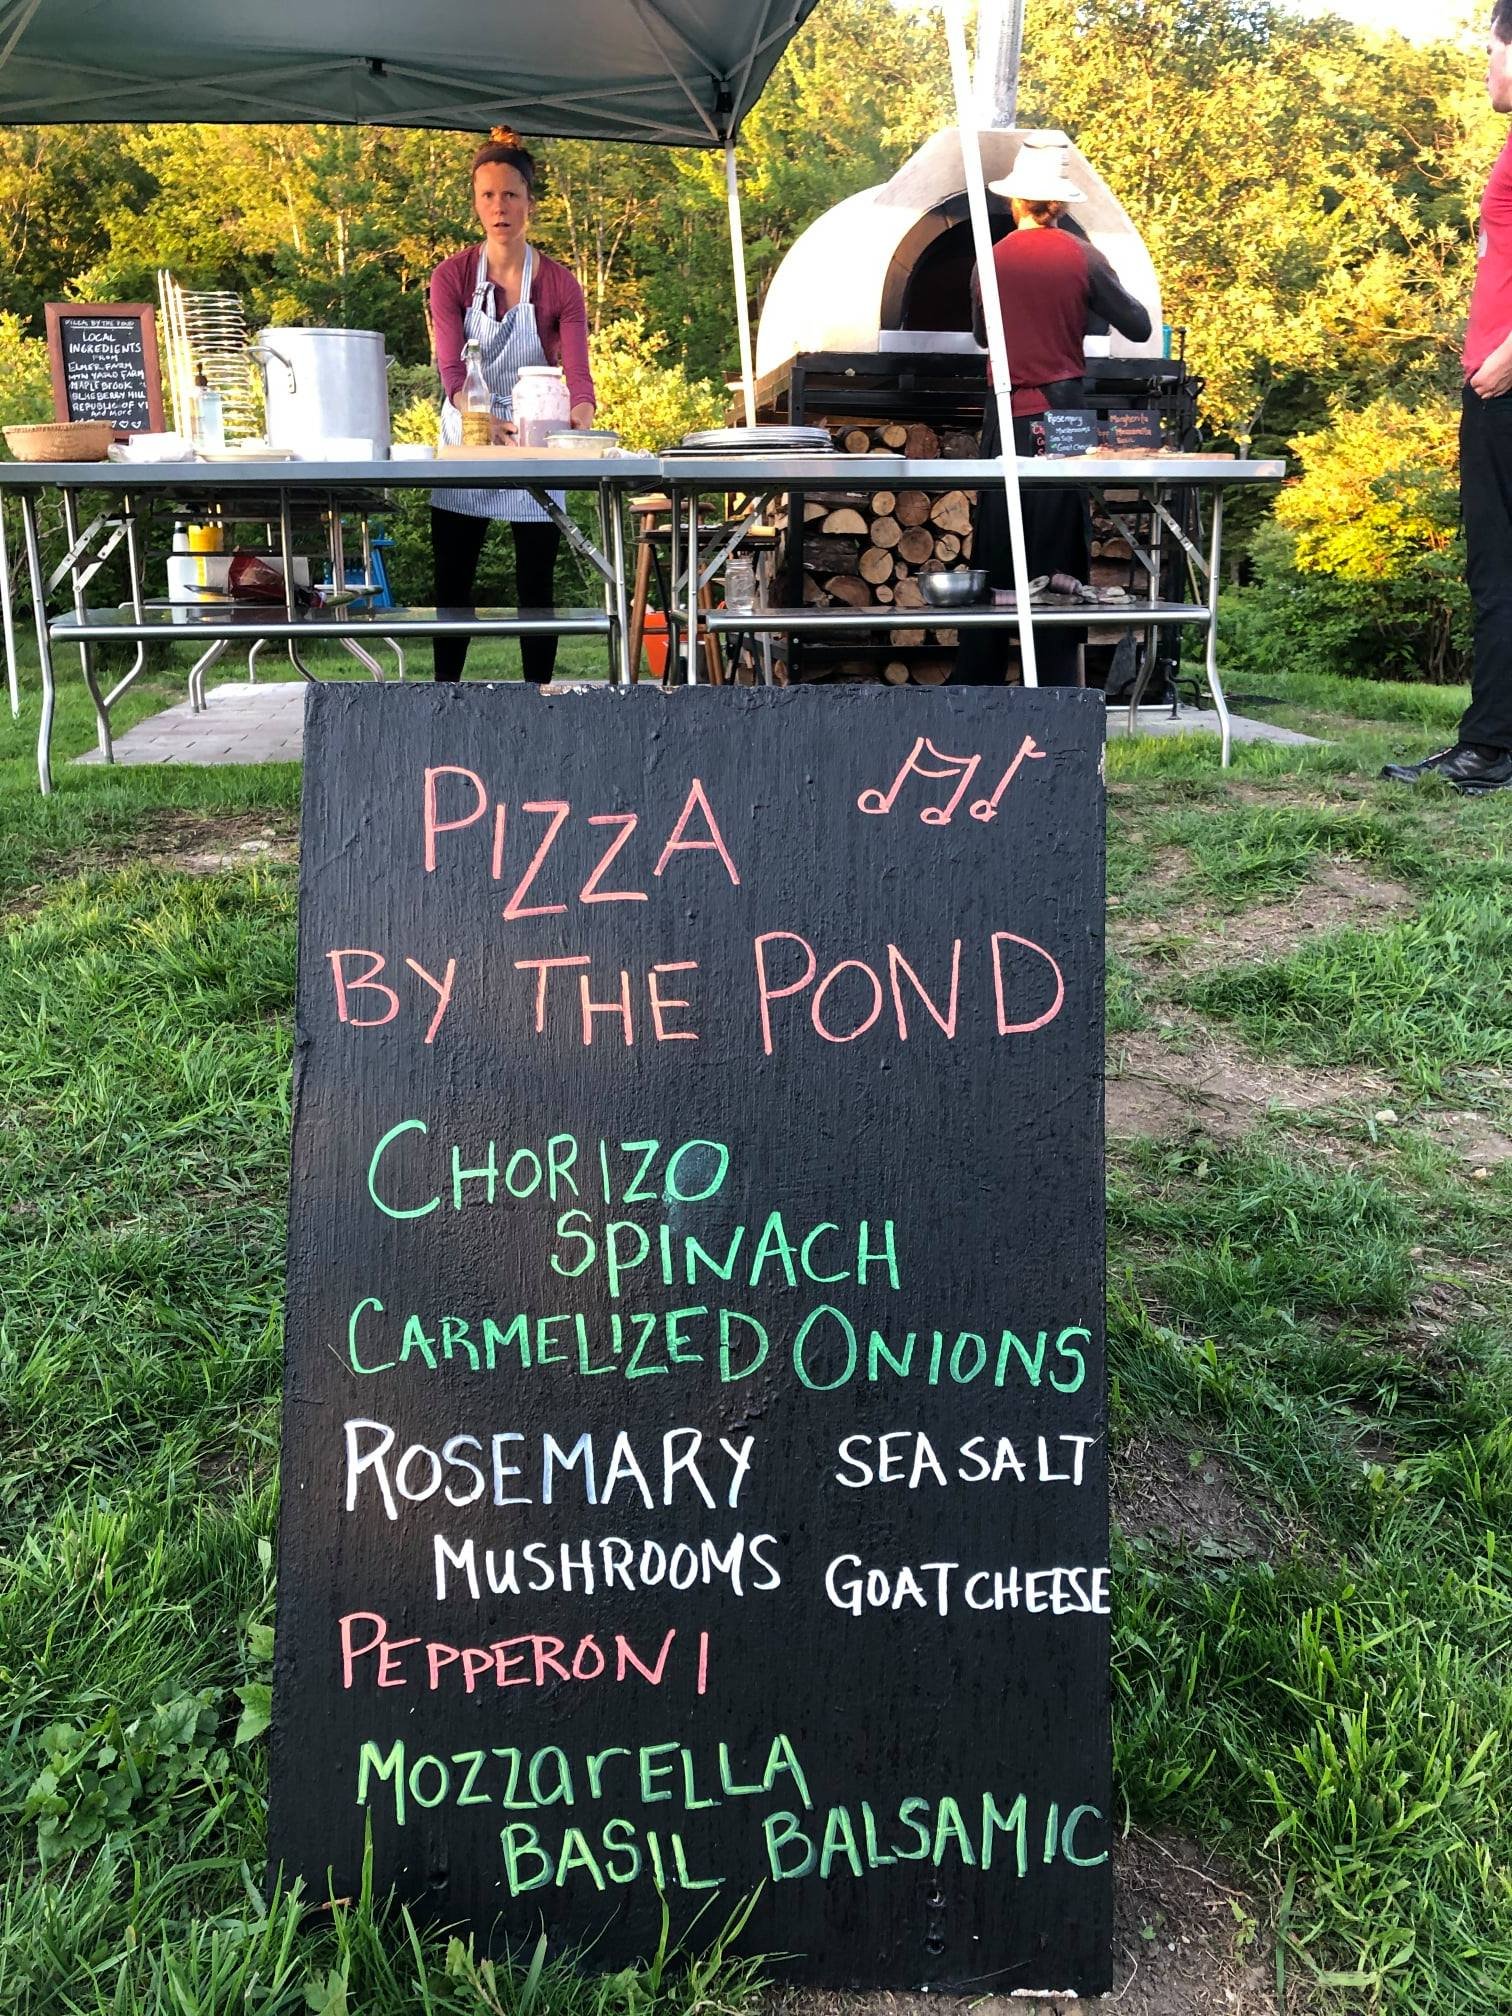 PIZZA BY THE POND
LOCAL
INGREDIENTS
FROM
ELMER FARM
MTN YARD FARM
MAPLEBROOK "
BLUEBERRY HILL
REPUBLIC OF VT
And More
Rosemary
Mushrooms
Sea Salt
Goat Cheese
Margherita
Mozzarella
Basil
PIZZA
BY THE POND
CHORIZO
SPINACH
CARMELIZED ONIONS
ROSEMARY SEA SALT
MUSHROOMS GOAT CHEESE
PEPPERONI
MOZZArELLA
BASIL BALSAMIC